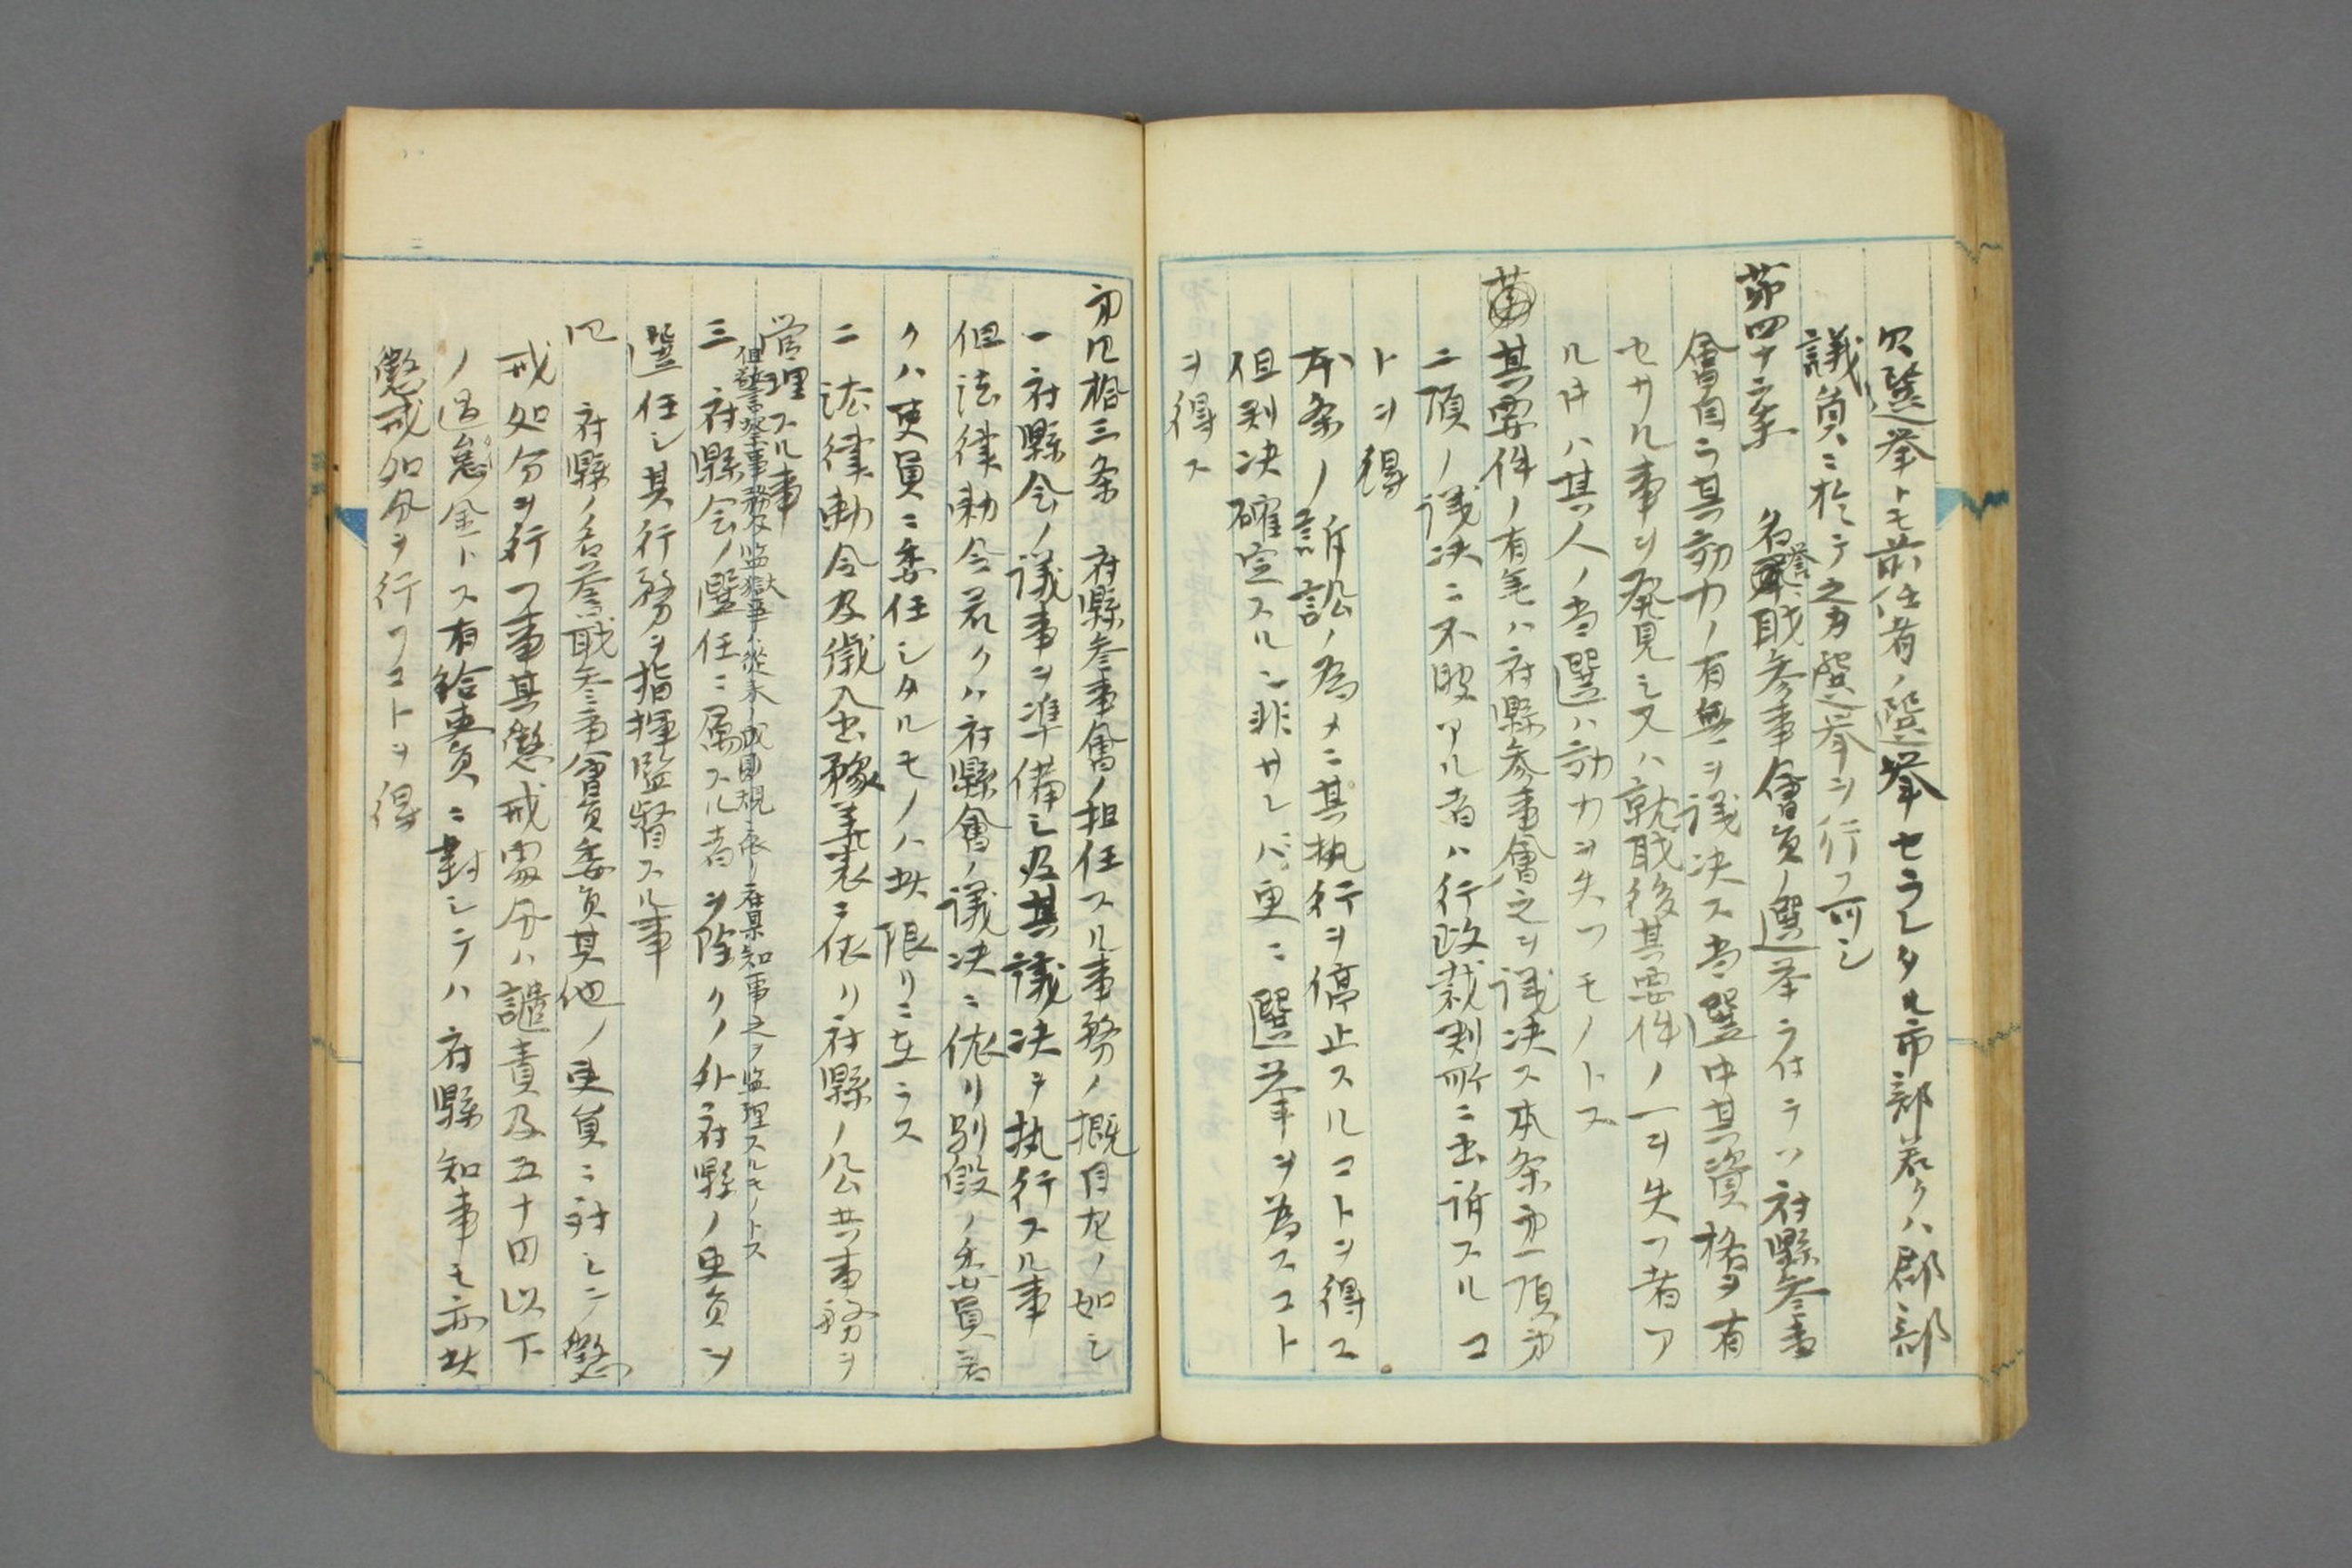 欠選挙トモ前任者ノ選挙セラレタル市部若クハ郡部
議員ニ於テ之カ選挙ヲ行フ可シ
第四十二条 名誉職参事會員ノ選挙ニ付テハ府縣参事
會自ラ其効力ノ有無ヲ議决ス当選中其資格ヲ有
セサル事ヲ発見シ又ハ就職後其要件ノ一ヲ失フ者ア
ル時ハ其人ノ当選ハ効力ヲ失フモノトス
其要件ノ有無ハ府縣参事會之ヲ議决ス本条第一項第
二項ノ議决ニ不服アル者ハ行政裁判所ニ出訴スルコ
トヲ得
本条ノ訴訟ノ為メニ其執行ヲ停止スルコトヲ得ス
但判决確定スルニ非サレバ更ニ選挙ヲ為スコト
ヲ得ス
第四拾三条 府縣参事會ノ担任スル事務ノ概目左ノ如シ
一 府縣会ノ議事ヲ準備シ及其議决ヲ執行スル事
但法律勅令若クハ府縣會ノ議决ニ依リ別段ノ委員若
クハ吏員ニ委任シタルモノハ此限リニ在ラス
二 法律勅令及歳入出豫算表ニ依リ府縣ノ公共事務ヲ
管理スル事
但警察事務及監獄事ハ従来ノ成規ニ依リ府県知事之ヲ監理スルモノトス
三 府縣会ノ選任ニ属スル者ヲ除クノ外府縣ノ吏員ヲ
選任シ其行務ヲ指揮監督スル事
四 府縣ノ名誉職参事會員委員其他ノ吏員ニ対シテ懲
戒処分ヲ行フ事其懲戒處分ハ譴責及五十円以下
ノ過怠金トス有給吏員ニ對シテハ府縣知事モ亦此
懲戒処分ヲ行フコトヲ得